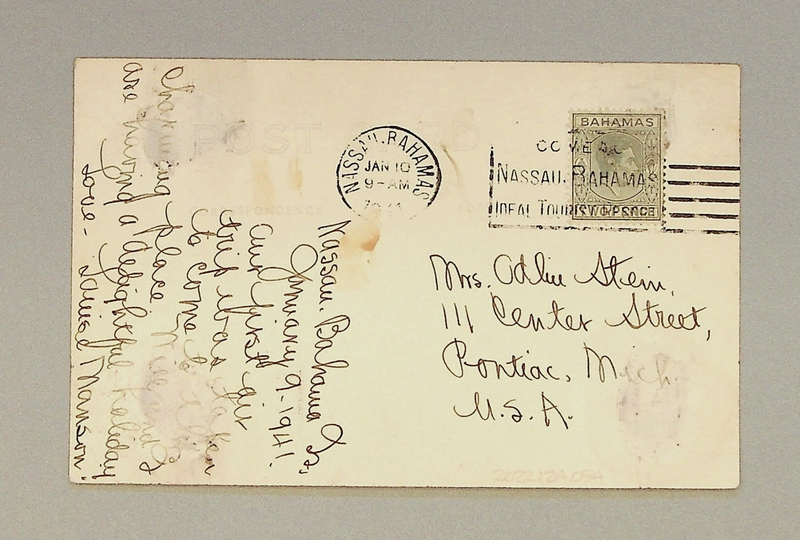 POST
CORRESPONDENCE
NASSAU. BAHAMAS
JAN 10
9 - AM
COME TO
NASSAU. BAHAMAS
IDEAL TOURIST
BAHAMAS
TWO PENCE
Nassau. Bahama Is,
January 9-1941.
Our first air
trip was taken
to come to this
charming place
are having a delightful holiday
Love-
Manson.
Mrs. Odlie Stein,
111 Center Street,
Pontiac, Mich.
U.S.A.